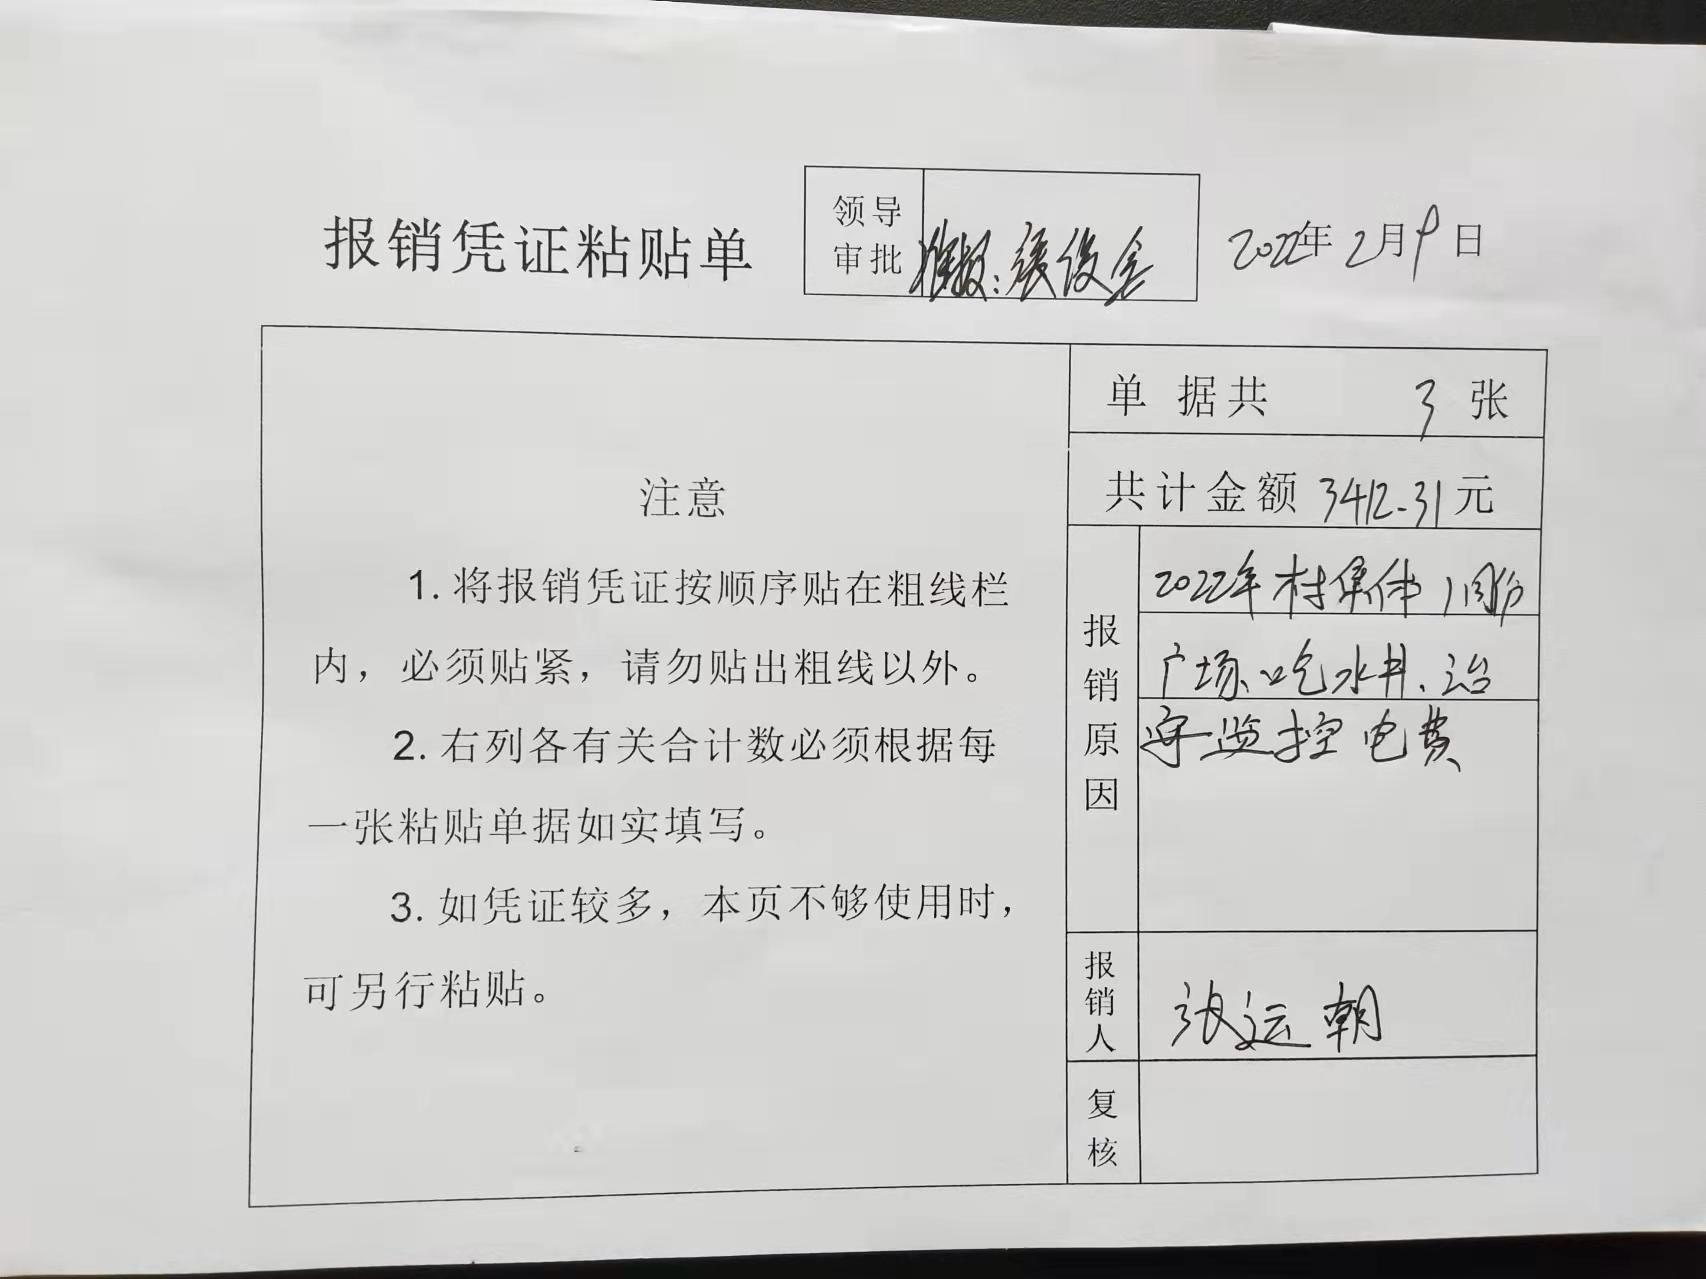 报销凭证粘贴单
领导审批
准报：张俊合
2022年2月9日
单据共 3 张
共计金额 3412.31元
注意
1. 将报销凭证按顺序贴在粗线栏
内，必须贴紧，请勿贴出粗线以外。
2. 右列各有关合计数必须根据每
一张粘贴单据如实填写。
3. 如凭证较多，本页不够使用时，
可另行粘贴。
报销原因
2022年村集体1月份
广场、吃水井、治
安监控电费
报销人
张运朝
复核